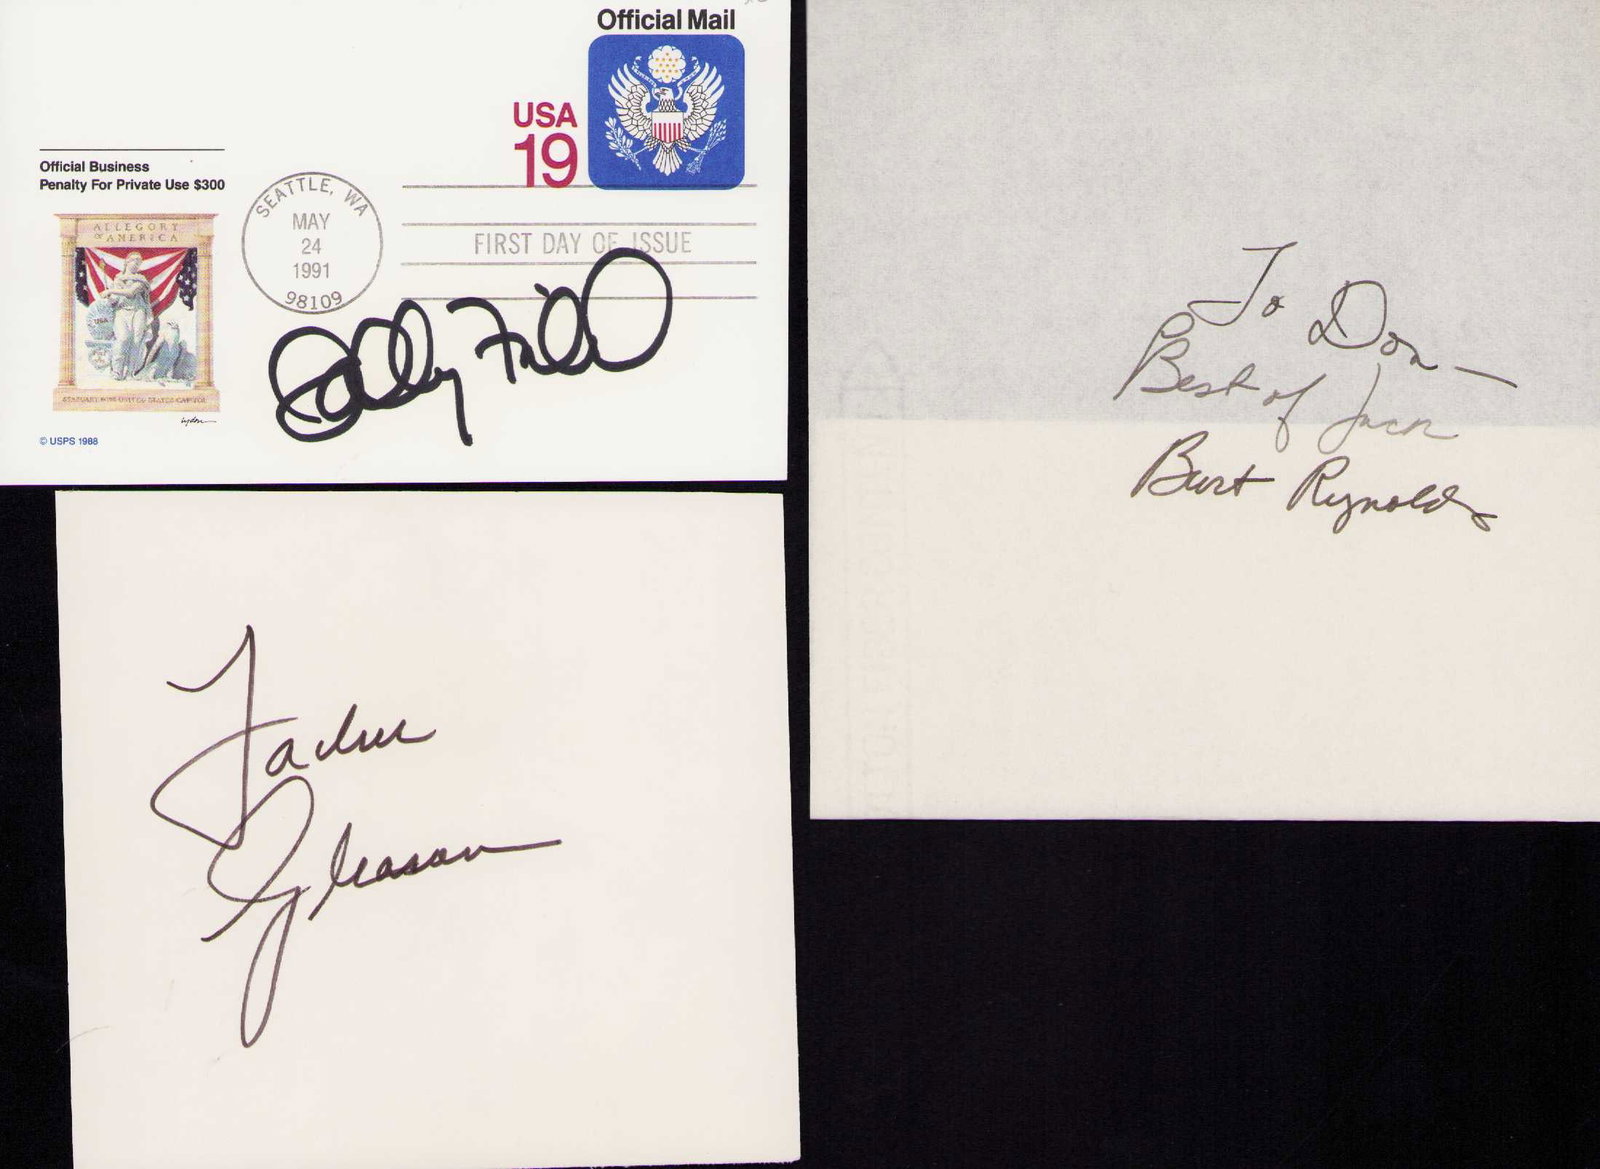 Official Mail
USA
19
Official Business
Penalty For Private Use $300
SEATTLE, WA
MAY
24
1991
98109
FIRST DAY OF ISSUE
ALLEGORY
OF AMERICA
USA
STATUARY FROM UNITED STATES CAPITOL
© USPS 1988
Sally Field
To Don —
Best of Luck
Burt Reynolds
Jackie
Gleason